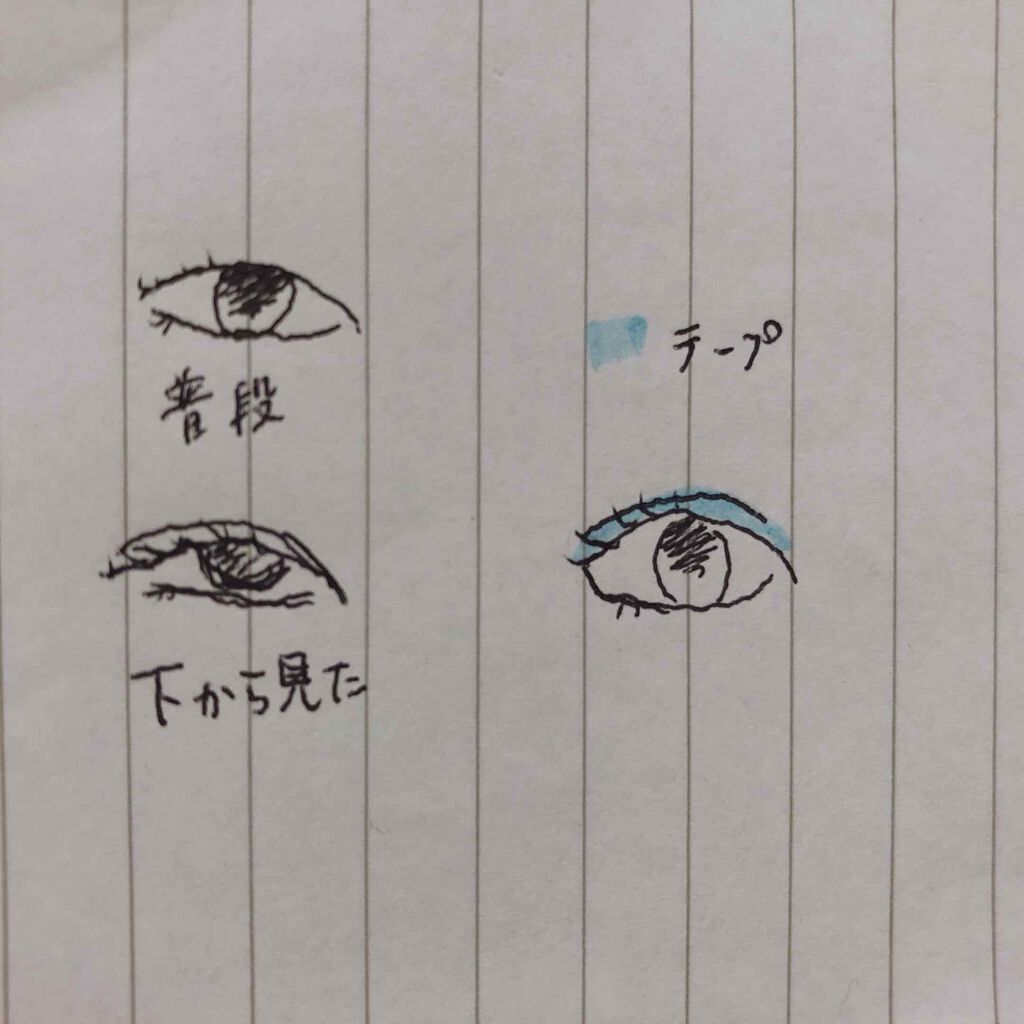 普段
テープ
下から見た